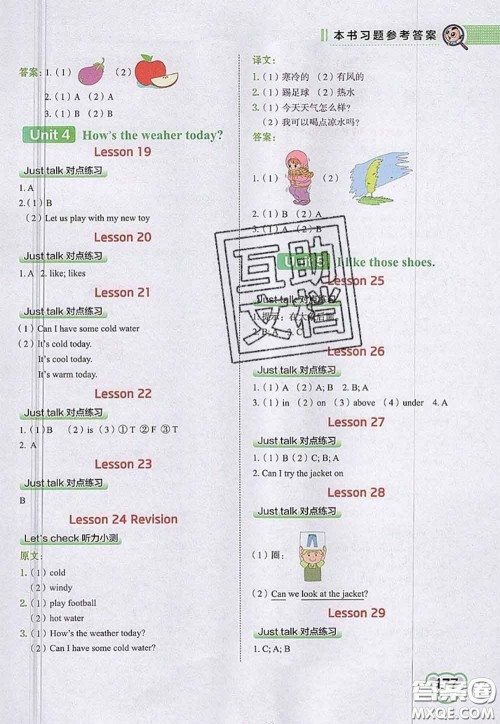 本书习题参考答案
答案: 1.(1) (2)
2.(1)A (2)A
3.(1)B (2)A
Unit 4 How's the weaher today?
Lesson 19
Just talk 对点练习
1. A
2.(1)B
(2) Let us play with my new toy
Lesson 20
Just talk 对点练习
1. A 2. like; likes
Lesson 21
Just talk 对点练习
(1) Can I have some cold water
(2) It's cold today.
It's cool today.
It's warm today.
Lesson 22
Just talk 对点练习
1.(1)B (2) is (3)①T ②F ③T
2. A
Lesson 23
Just talk 对点练习
B
Lesson 24 Revision
Let's check 听力小测
原文:
1.(1) cold
(2) windy
2.(1) play football
(2) hot water
3.(1) How's the weather today?
(2) Can I have some cold water?
译文:
1.(1) 寒冷的 (2) 有风的
2.(1) 踢足球 (2) 热水
3.(1) 今天天气怎么样?
(2) 我可以喝点凉水吗?
答案:
1.(1) (2)
2.(1)A (2)A
3.(1)B (2)A
Unit 5 I like those shoes.
Lesson 25
Just talk 对点练习
1. 提示: 在大
2. B; A 3. C
Lesson 26
Just talk 对点练习
1.(1)A (2)A; B 2. B; A
3.(1) in (2) on (3) above (4) under 4. A
Lesson 27
Just talk 对点练习
1.(1)B (2)C; B; A
2. Can I try the jacket on
Lesson 28
Just talk 对点练习
(1) 圈:
(2) Can we look at the jacket?
Lesson 29
Just talk 对点练习
1. C; A; B
177
互助
文档
答案圈
MXQE.COM